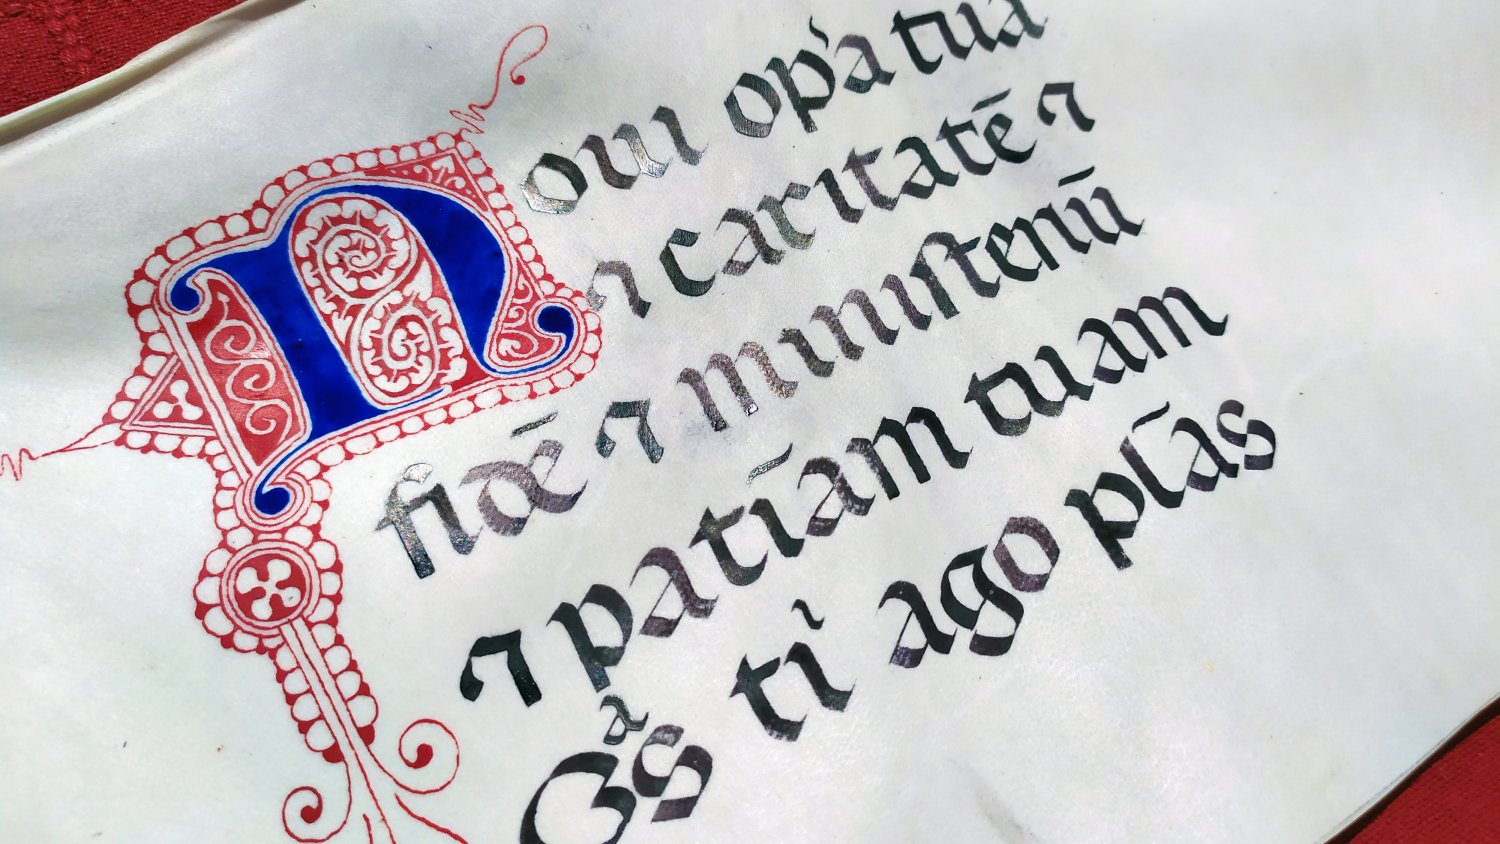 Noui op'a tua
⁊ caritatē ⁊
fidē ⁊ miniſteriū
⁊ patīam tuam
Gᵃs ti' ago plās